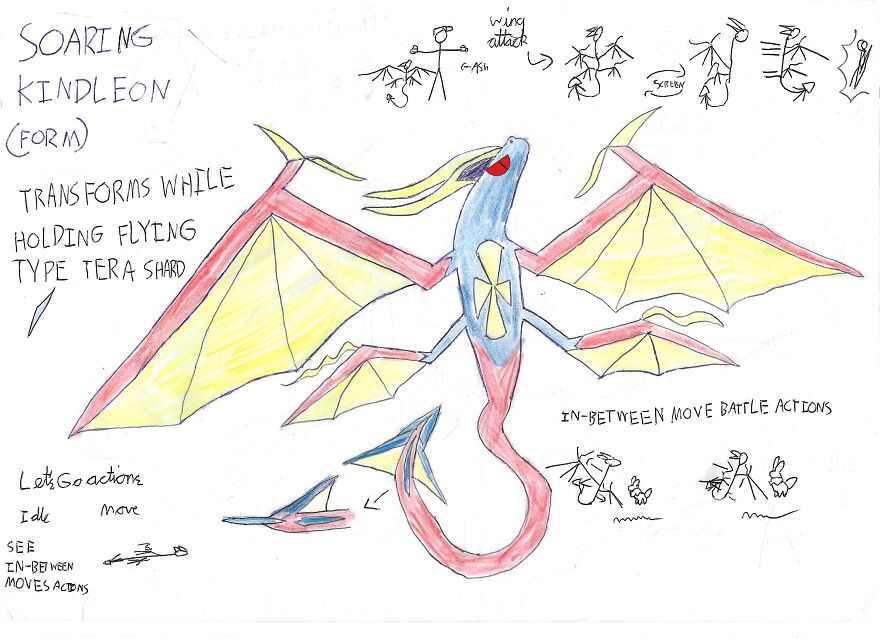 SOARING
KINDLEON
(FORM)
TRANSFORMS WHILE
HOLDING FLYING
TYPE TERA SHARD
wing
attack
GASH
SCREEN
IN-BETWEEN MOVE BATTLE ACTIONS
Let's Go actions
Idle
Move
SEE
IN-BETWEEN
MOVES ACTIONS